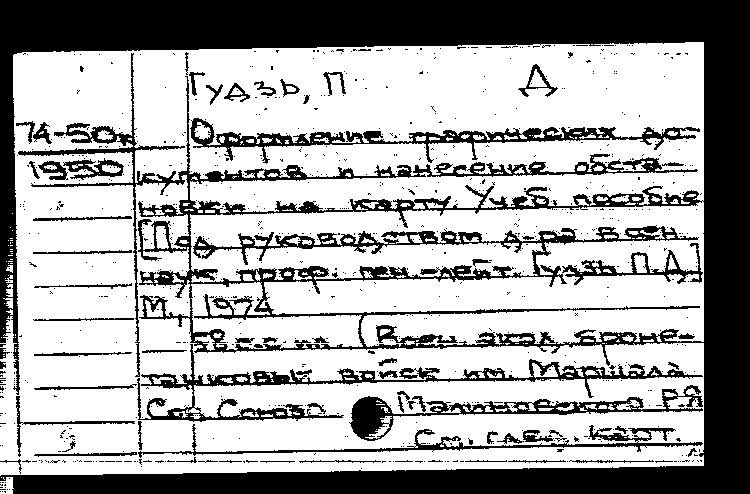 Гудзь, П Д
74-50к Оформление графических до-
1950 кументов и нанесение обста-
новки на карту. Учеб. пособие
[Под руководством д-ра воен.
наук, проф. ген.-лейт. Гудзь П.Д.]
М., 1974.
с ил. (Воен. акад. броне-
танковых войск им. Маршала
Сов. Союза Малиновского Р.Я
См. след. карт.